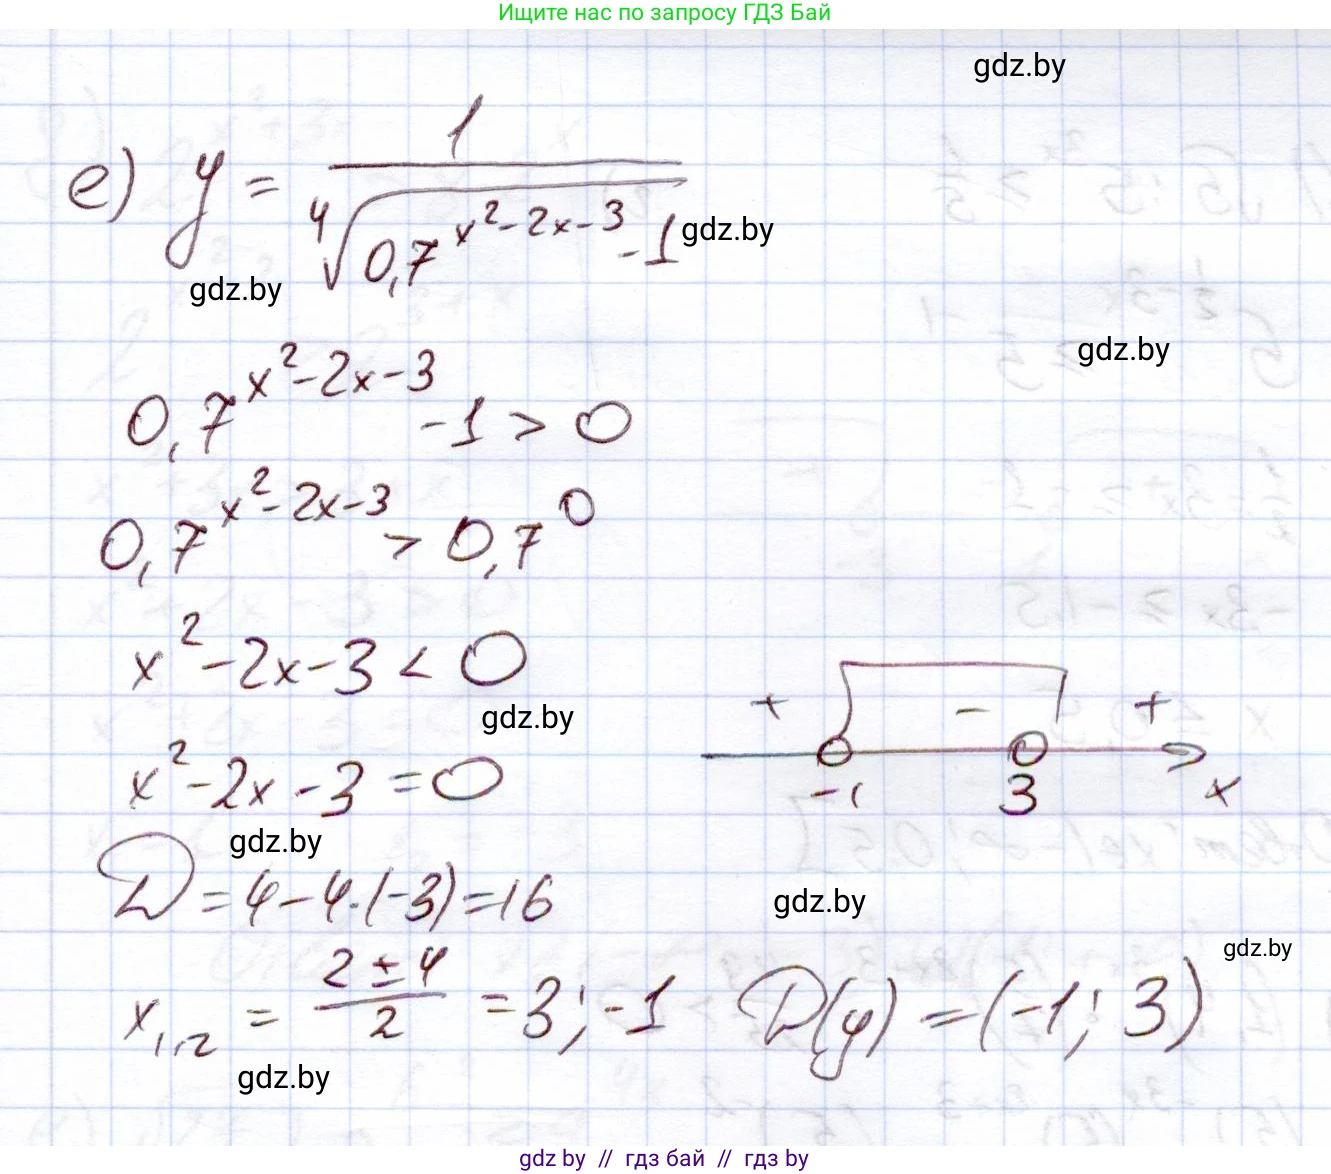 Ищите нас по запросу ГДЗ Бай
gdz.by
е) y = 1 / ⁴√(0,7^(x²-2x-3) - 1)
gdz.by
gdz.by
gdz.by
0,7^(x²-2x-3) - 1 > 0
0,7^(x²-2x-3) > 0,7^0
x² - 2x - 3 < 0
gdz.by
+ - +
-1 3 x
x² - 2x - 3 = 0
gdz.by
D = 4 - 4·(-3) = 16
gdz.by
gdz.by
x₁,₂ = (2 ± 4) / 2 = 3; -1 D(y) = (-1; 3)
gdz.by
gdz by // гдз бай // гдз by